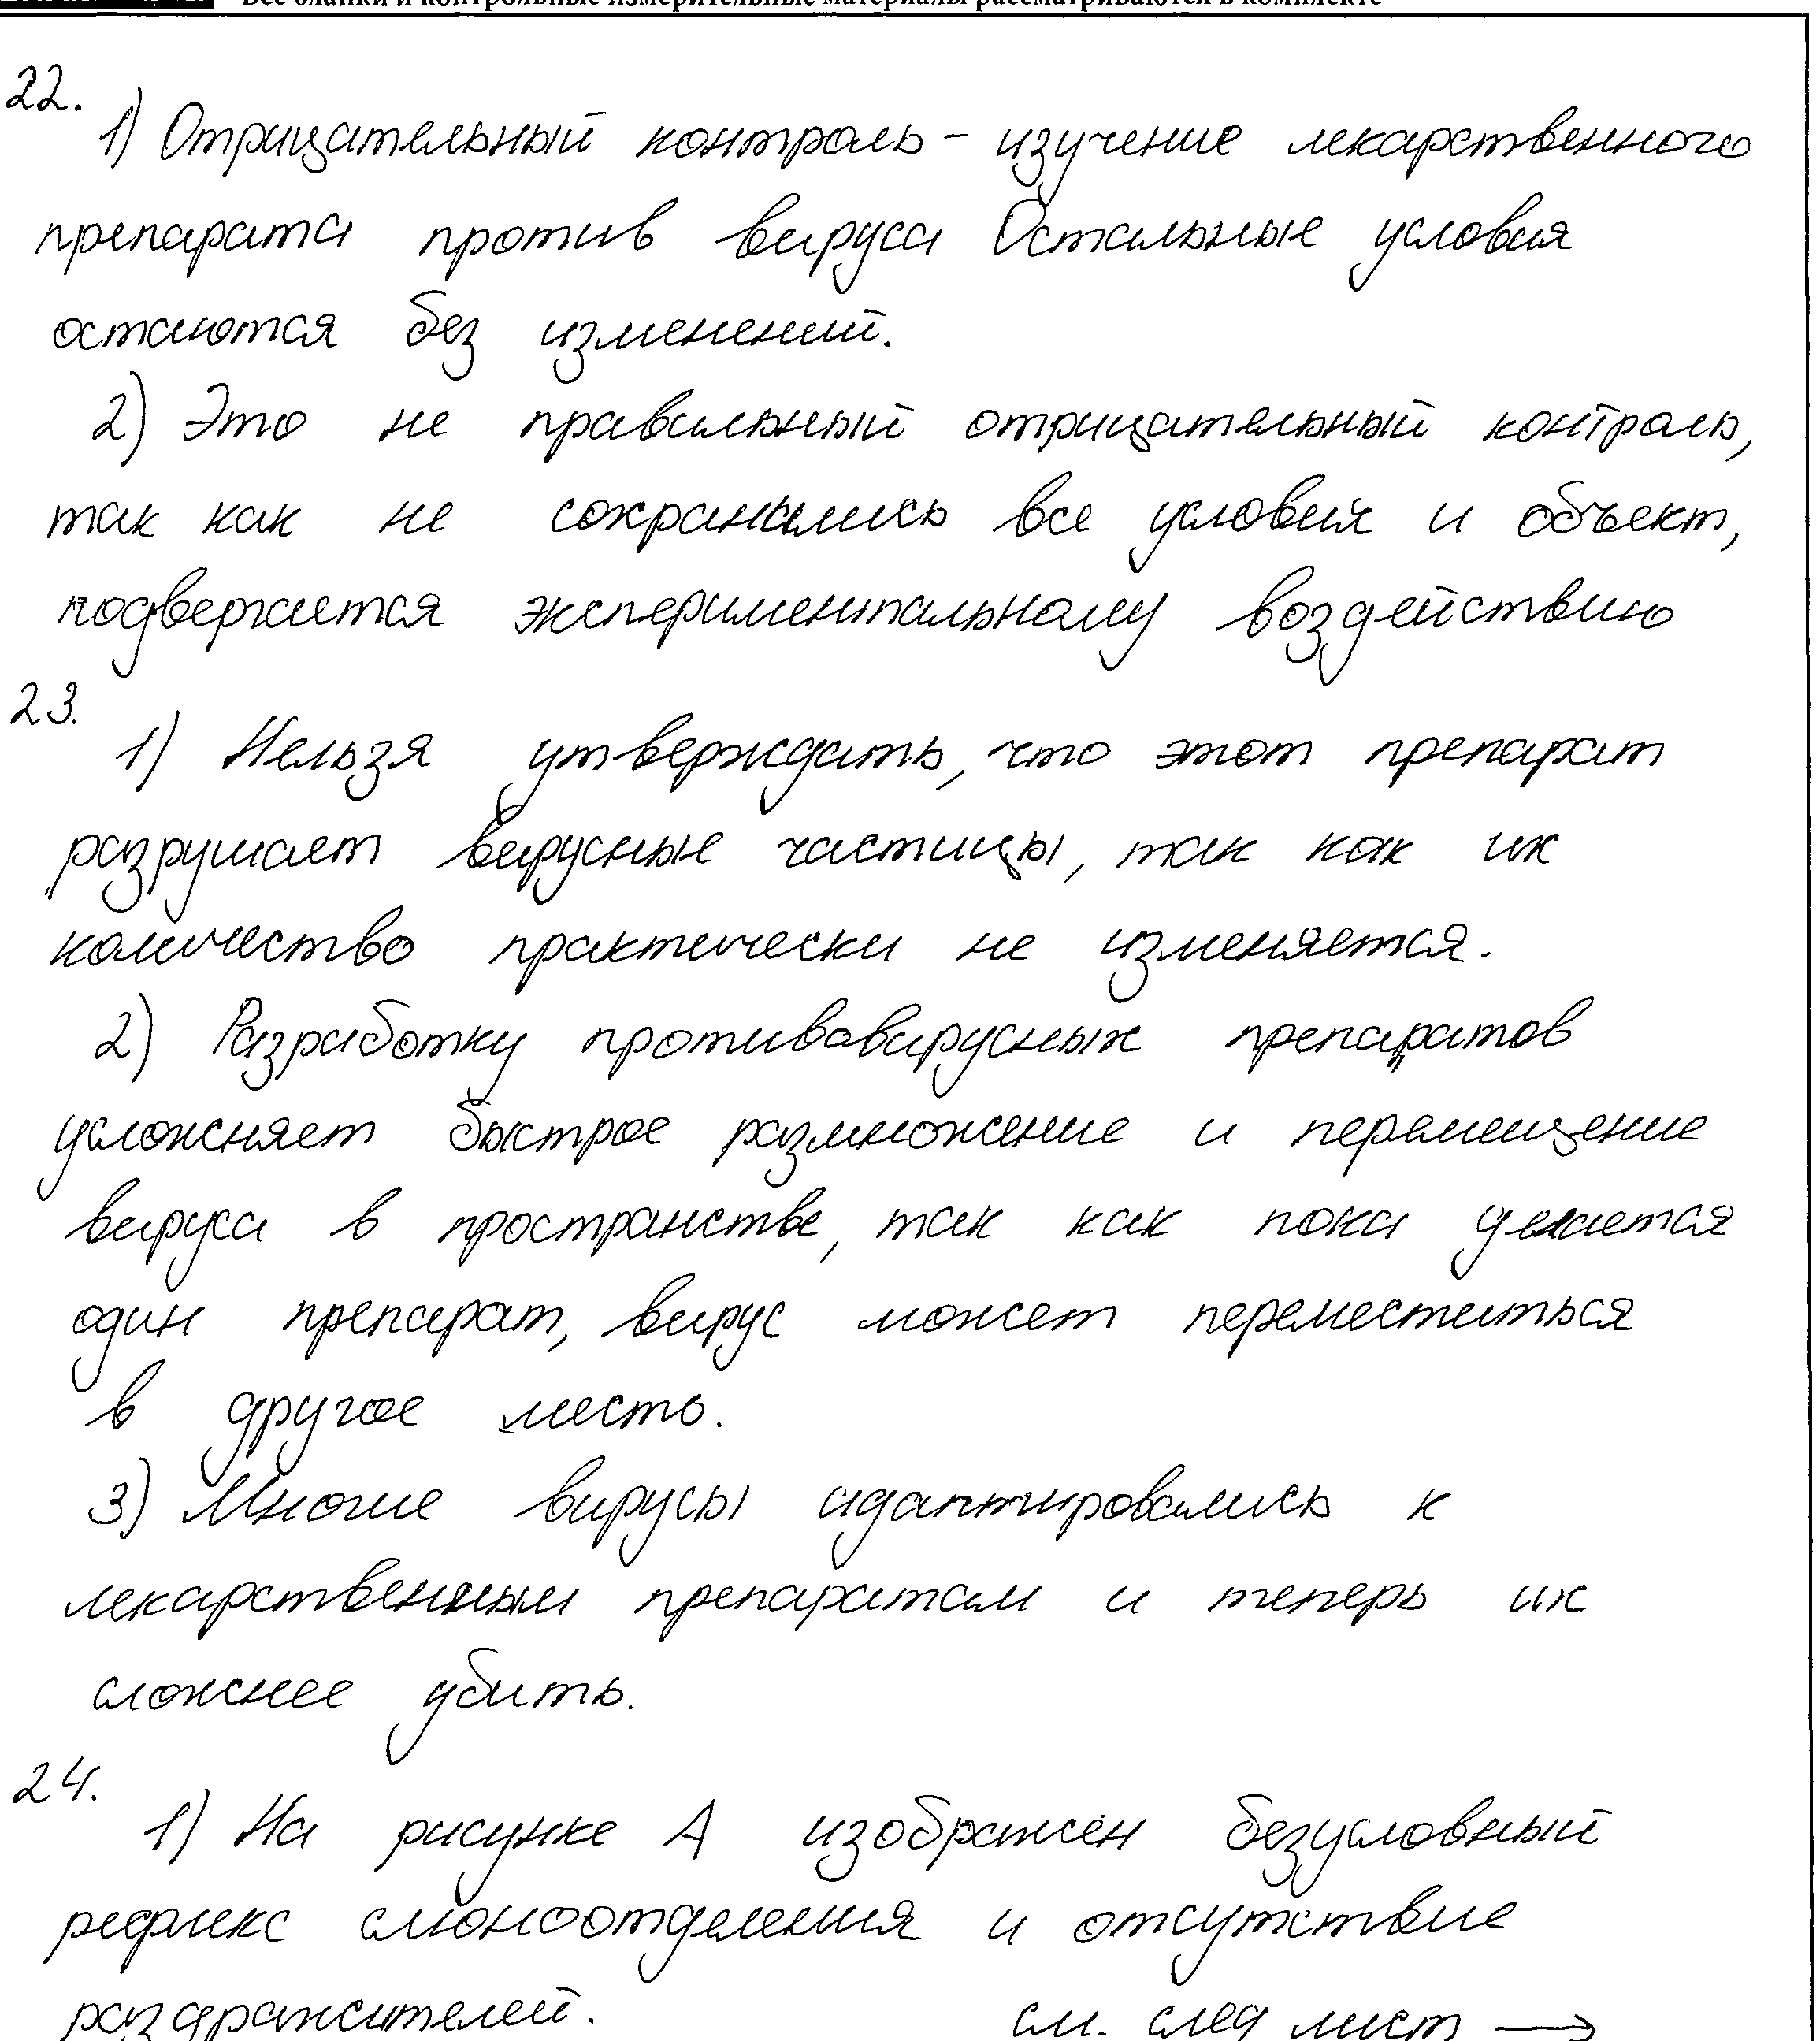 Все бланки и контрольные измерительные материалы рассматриваются в комплекте
22.
1) Отрицательный контроль - изучение лекарственного
препарата против вируса Остальные условия
остаются без изменений.
2) Это не правильный отрицательный контроль,
так как не сохранились все условия и объект,
подвергается экспериментальному воздействию
23.
1) Нельзя утверждать, что этот препарат
разрушает вирусные частицы, так как их
количество практически не изменяется.
2) Разработку противовирусных препаратов
усложняет быстрое размножение и перемещение
вируса в пространстве, так как пока делается
один препарат, вирус может переместиться
в другое место.
3) Многие вирусы адаптировались к
лекарственным препаратам и теперь их
сложнее убить.
24.
1) На рисунке А изображён безусловный
рефлекс слюноотделения и отсутствие
раздражителей. см. след лист →